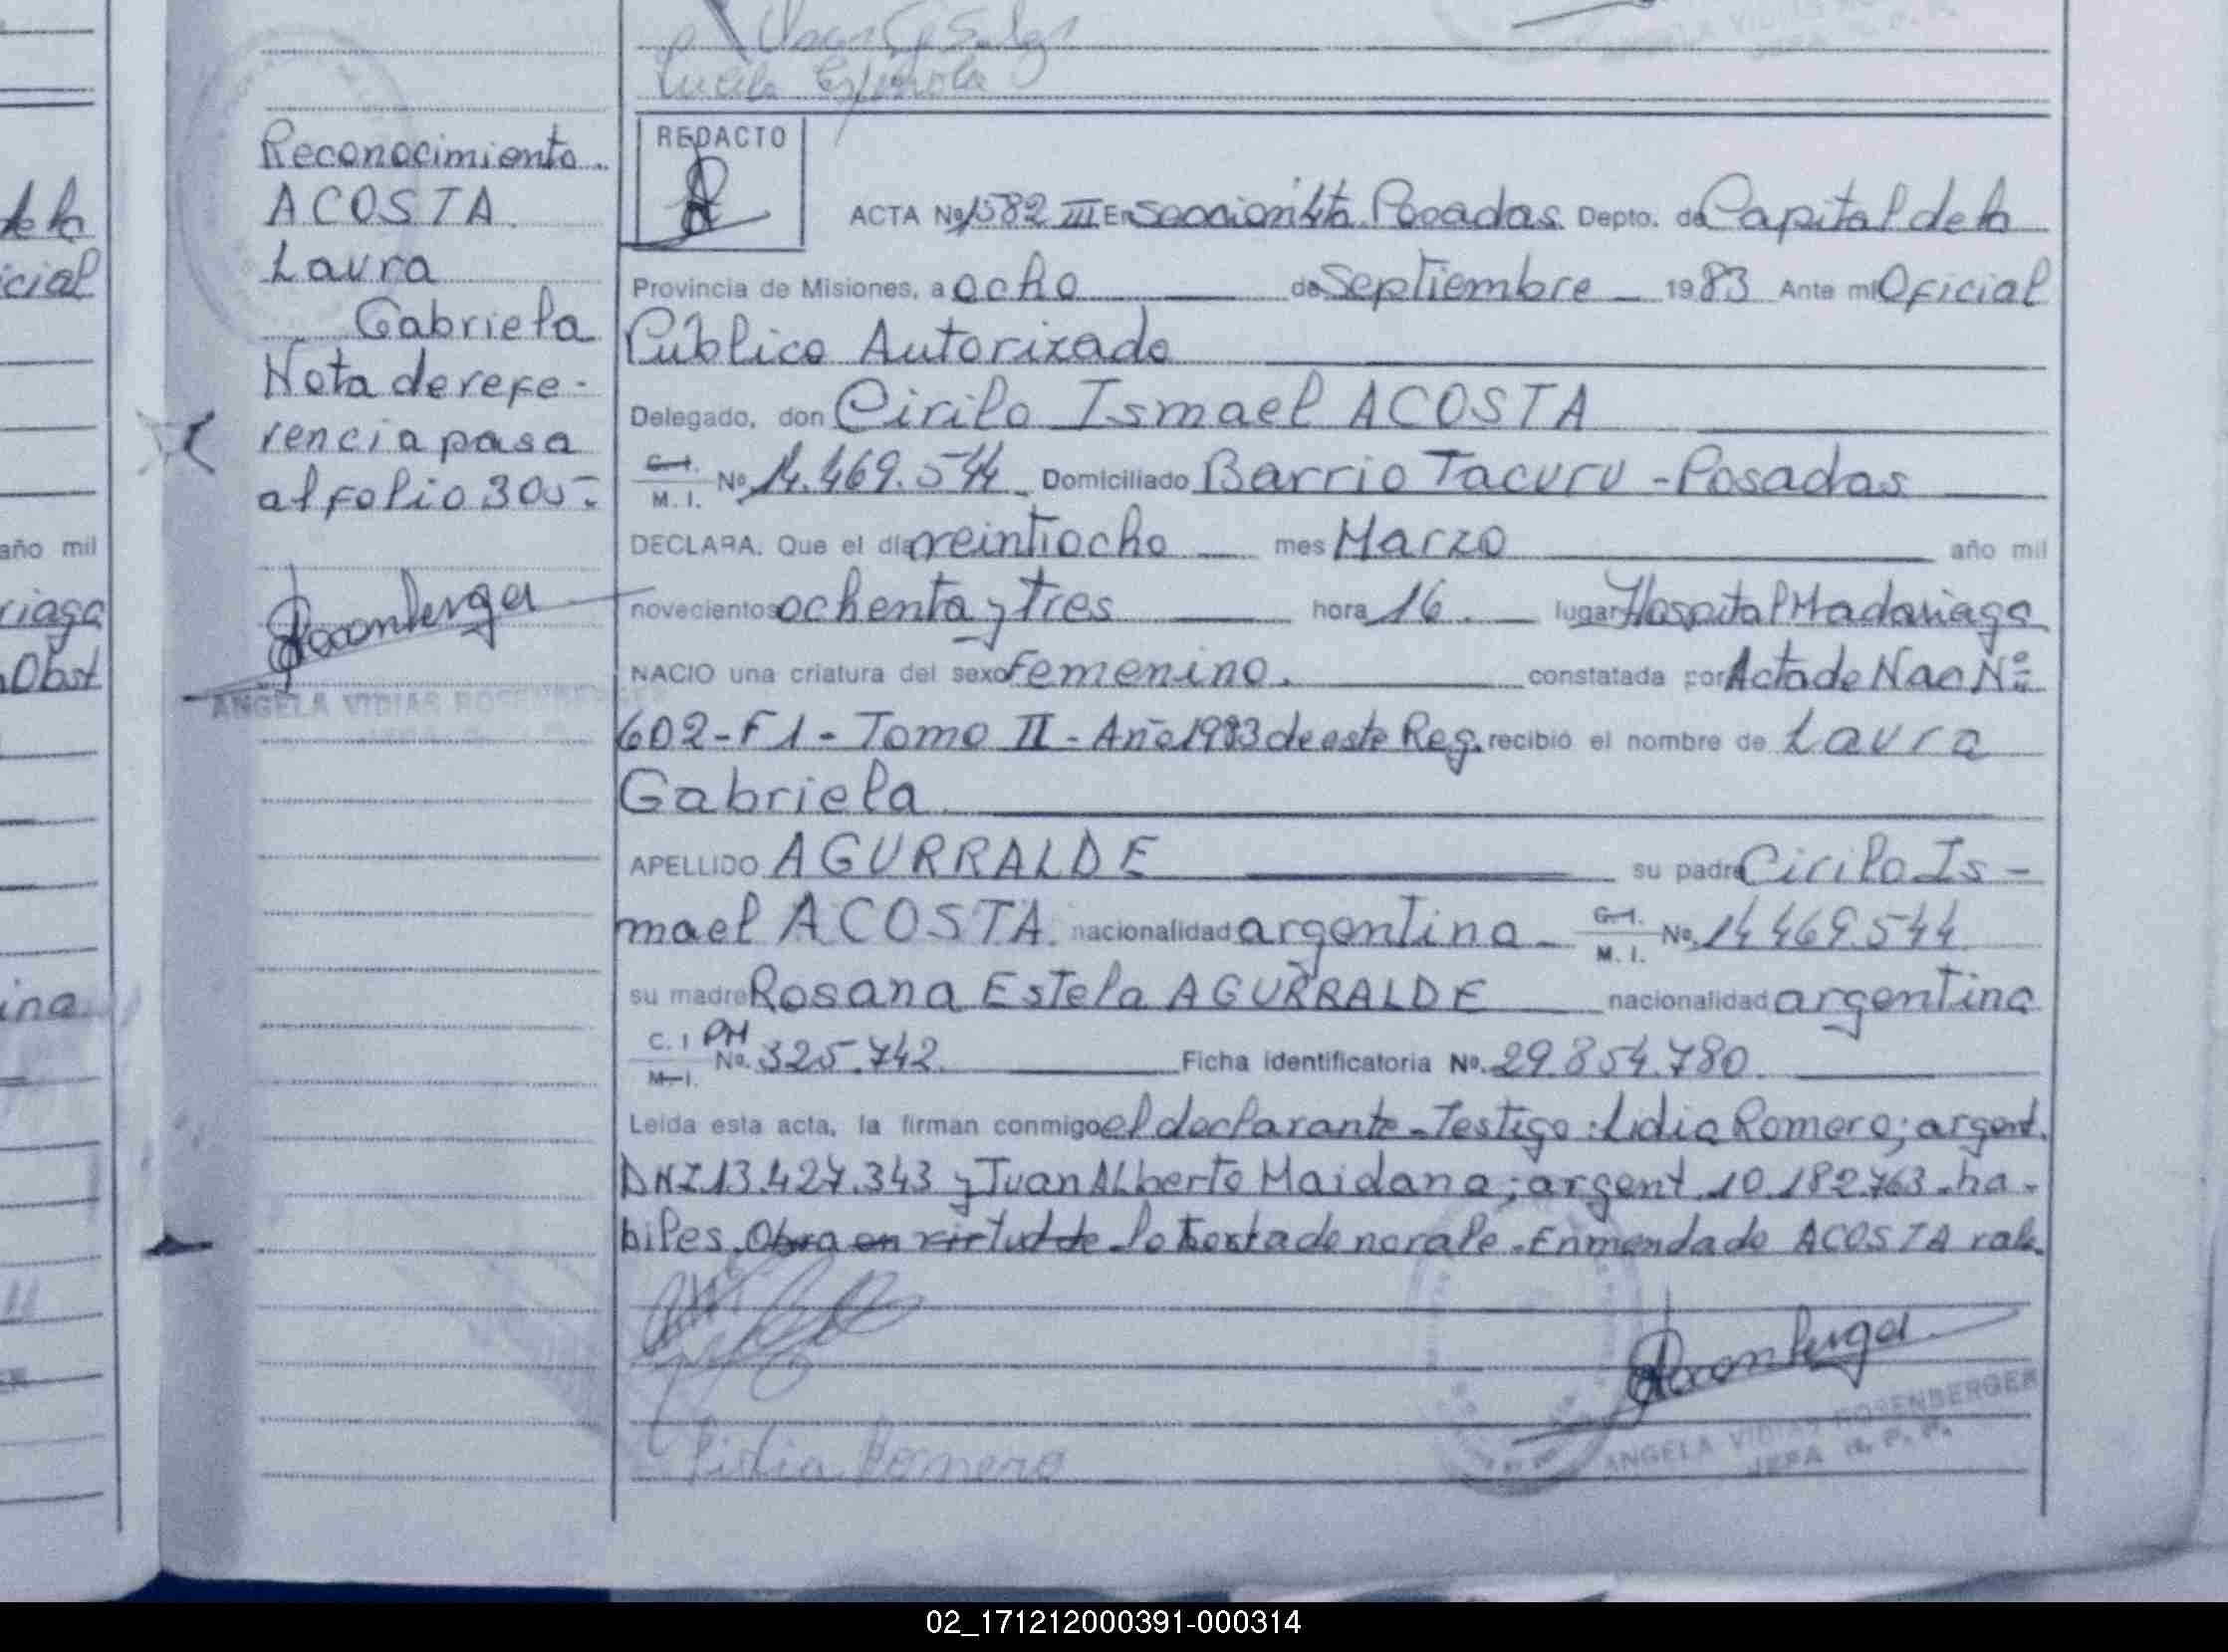 Lucila Espinola
Reconocimiento
ACOSTA
Laura
Gabriela
Nota de refe-
rencia pasa
al folio 305-
ANGELA VIDIAS ROSENBERGER
REDACTO
ACTA Nº 1582 III En seccion 4ta Posadas Depto. de Capital de la
Provincia de Misiones, a ocho de Septiembre 1983 Ante mí Oficial
Público Autorizado
Delegado, don Cirilo Ismael ACOSTA
C.I. M.I. Nº 14.469.544 Domiciliado Barrio Tacuru - Posadas
DECLARA. Que el día veintiocho mes Marzo año mil
novecientos ochenta y tres hora 16. lugar Hospital Madariaga
NACIO una criatura del sexo femenino. constatada por Acta de Nac Nº
602-F1-Tomo II-Año 1983 de este Reg. recibió el nombre de Laura
Gabriela
APELLIDO AGURRALDE su padre Cirilo Is-
mael ACOSTA. nacionalidad argentina C.I. M.I. Nº. 14.469.544
su madre Rosana Estela AGURRALDE nacionalidad argentina
C.I. M.I. PM Nº. 325.742. Ficha identificatoria Nº. 29.854.780.
Leída esta acta, la firman conmigo el declarante-Testigo: Lidia Romero; argent.
DNI.13.427.343 y Juan Alberto Maidana; argent. 10.182.763.ha-
biles. Obra en virtud de lo testado no vale. Enmendado ACOSTA vale.
Lidia Romero
ANGELA VIDIAS ROSENBERGER
JEFA R. P. P.
de la
icial
año mil
riaga
Obst
ina
02_171212000391-000314